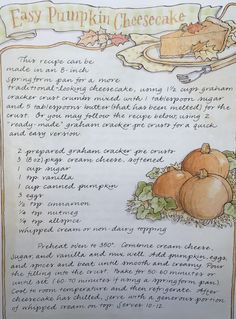 Easy Pumpkin Cheesecake
This recipe can be
made in an 8-inch
springform pan for a more
traditional-looking cheesecake, using 1½ cups graham
cracker crust crumbs mixed with 1 tablespoon sugar
and 5 tablespoons butter (that has been melted) for the
crust. Or you may follow the recipe below, using 2
"ready-made" graham cracker pie crusts for a quick
and easy version.
2 prepared graham cracker pie crusts
3 (8 oz) pkgs cream cheese, softened
1 cup sugar
1 tsp. vanilla
1 cup canned pumpkin
3 eggs
½ tsp. cinnamon
¼ tsp. nutmeg
¼ tsp. allspice
whipped cream or non-dairy topping
Preheat oven to 350°. Combine cream cheese,
sugar, and vanilla and mix well. Add pumpkin, eggs,
and spices and beat until smooth and creamy. Pour
the filling into the crust. Bake for 50-60 minutes or
until set (60-70 minutes if using a springform pan).
Cool to room temperature and then refrigerate. After
cheesecake has chilled, serve with a generous portion
of whipped cream on top. Serves 10-12.